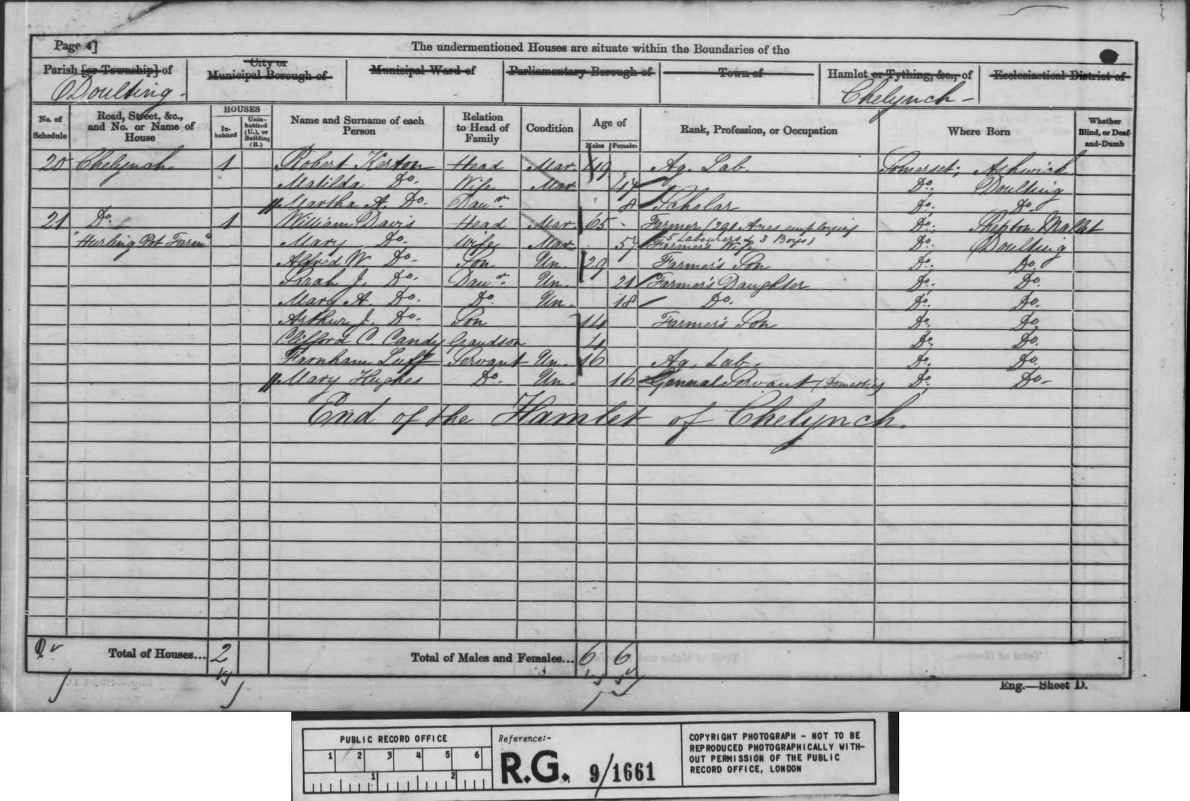 Page 4]
The undermentioned Houses are situate within the Boundaries of the
Parish [or Township] of
Doulting
City or Municipal Borough of
Municipal Ward of
Parliamentary Borough of
Town of
Hamlet or Tything, &c., of
Chelynch
Ecclesiastical District of
No. of Schedule
Road, Street, &c., and No. or Name of House
HOUSES
Inhabited
Uninhabited (U.), or Building (B.)
Name and Surname of each Person
Relation to Head of Family
Condition
Age of
Males
Females
Rank, Profession, or Occupation
Where Born
Whether Blind, or Deaf-and-Dumb
20 Chelynch 1 Robert Kerton Head Mar 49 Ag. Lab. Somerset; Ashwick
Matilda Do. Wife Mar 47 Do. Doulting
Martha A. Do. Daur. 8 Scholar Do. Do.
21 Do. 1 William Davis Head Mar 65 Farmer Acres employing Do. Shepton Mallet
"Hurling Pot Farm" 5 Labourers & 3 Boys)
Mary Do. Wife Mar 57 Farmer's Wife Do. Doulting
Alfred W. Do. Son Un. 29 Farmer's Son Do. Do.
Sarah J. Do. Daur. Un. 21 Farmer's Daughter Do. Do.
Mary A. Do. Do. Un. 18 Do. Do. Do.
Arthur J. Do. Son 14 Farmer's Son Do. Do.
Clifford C. Candy Grandson 4 Do. Do.
Farnham Luff Servant Un. 16 Ag. Lab. Do. Do.
Mary Hughes Do. Un. 16 General Servant (Domestic) Do. Do.
End of the Hamlet of Chelynch.
Total of Houses... 2
Total of Males and Females... 6 6
Eng.—Sheet D.
PUBLIC RECORD OFFICE
1 2 3 4 5 6
1 2
Reference:-
R.G. 9/1661
COPYRIGHT PHOTOGRAPH - NOT TO BE
REPRODUCED PHOTOGRAPHICALLY WITH-
OUT PERMISSION OF THE PUBLIC
RECORD OFFICE, LONDON